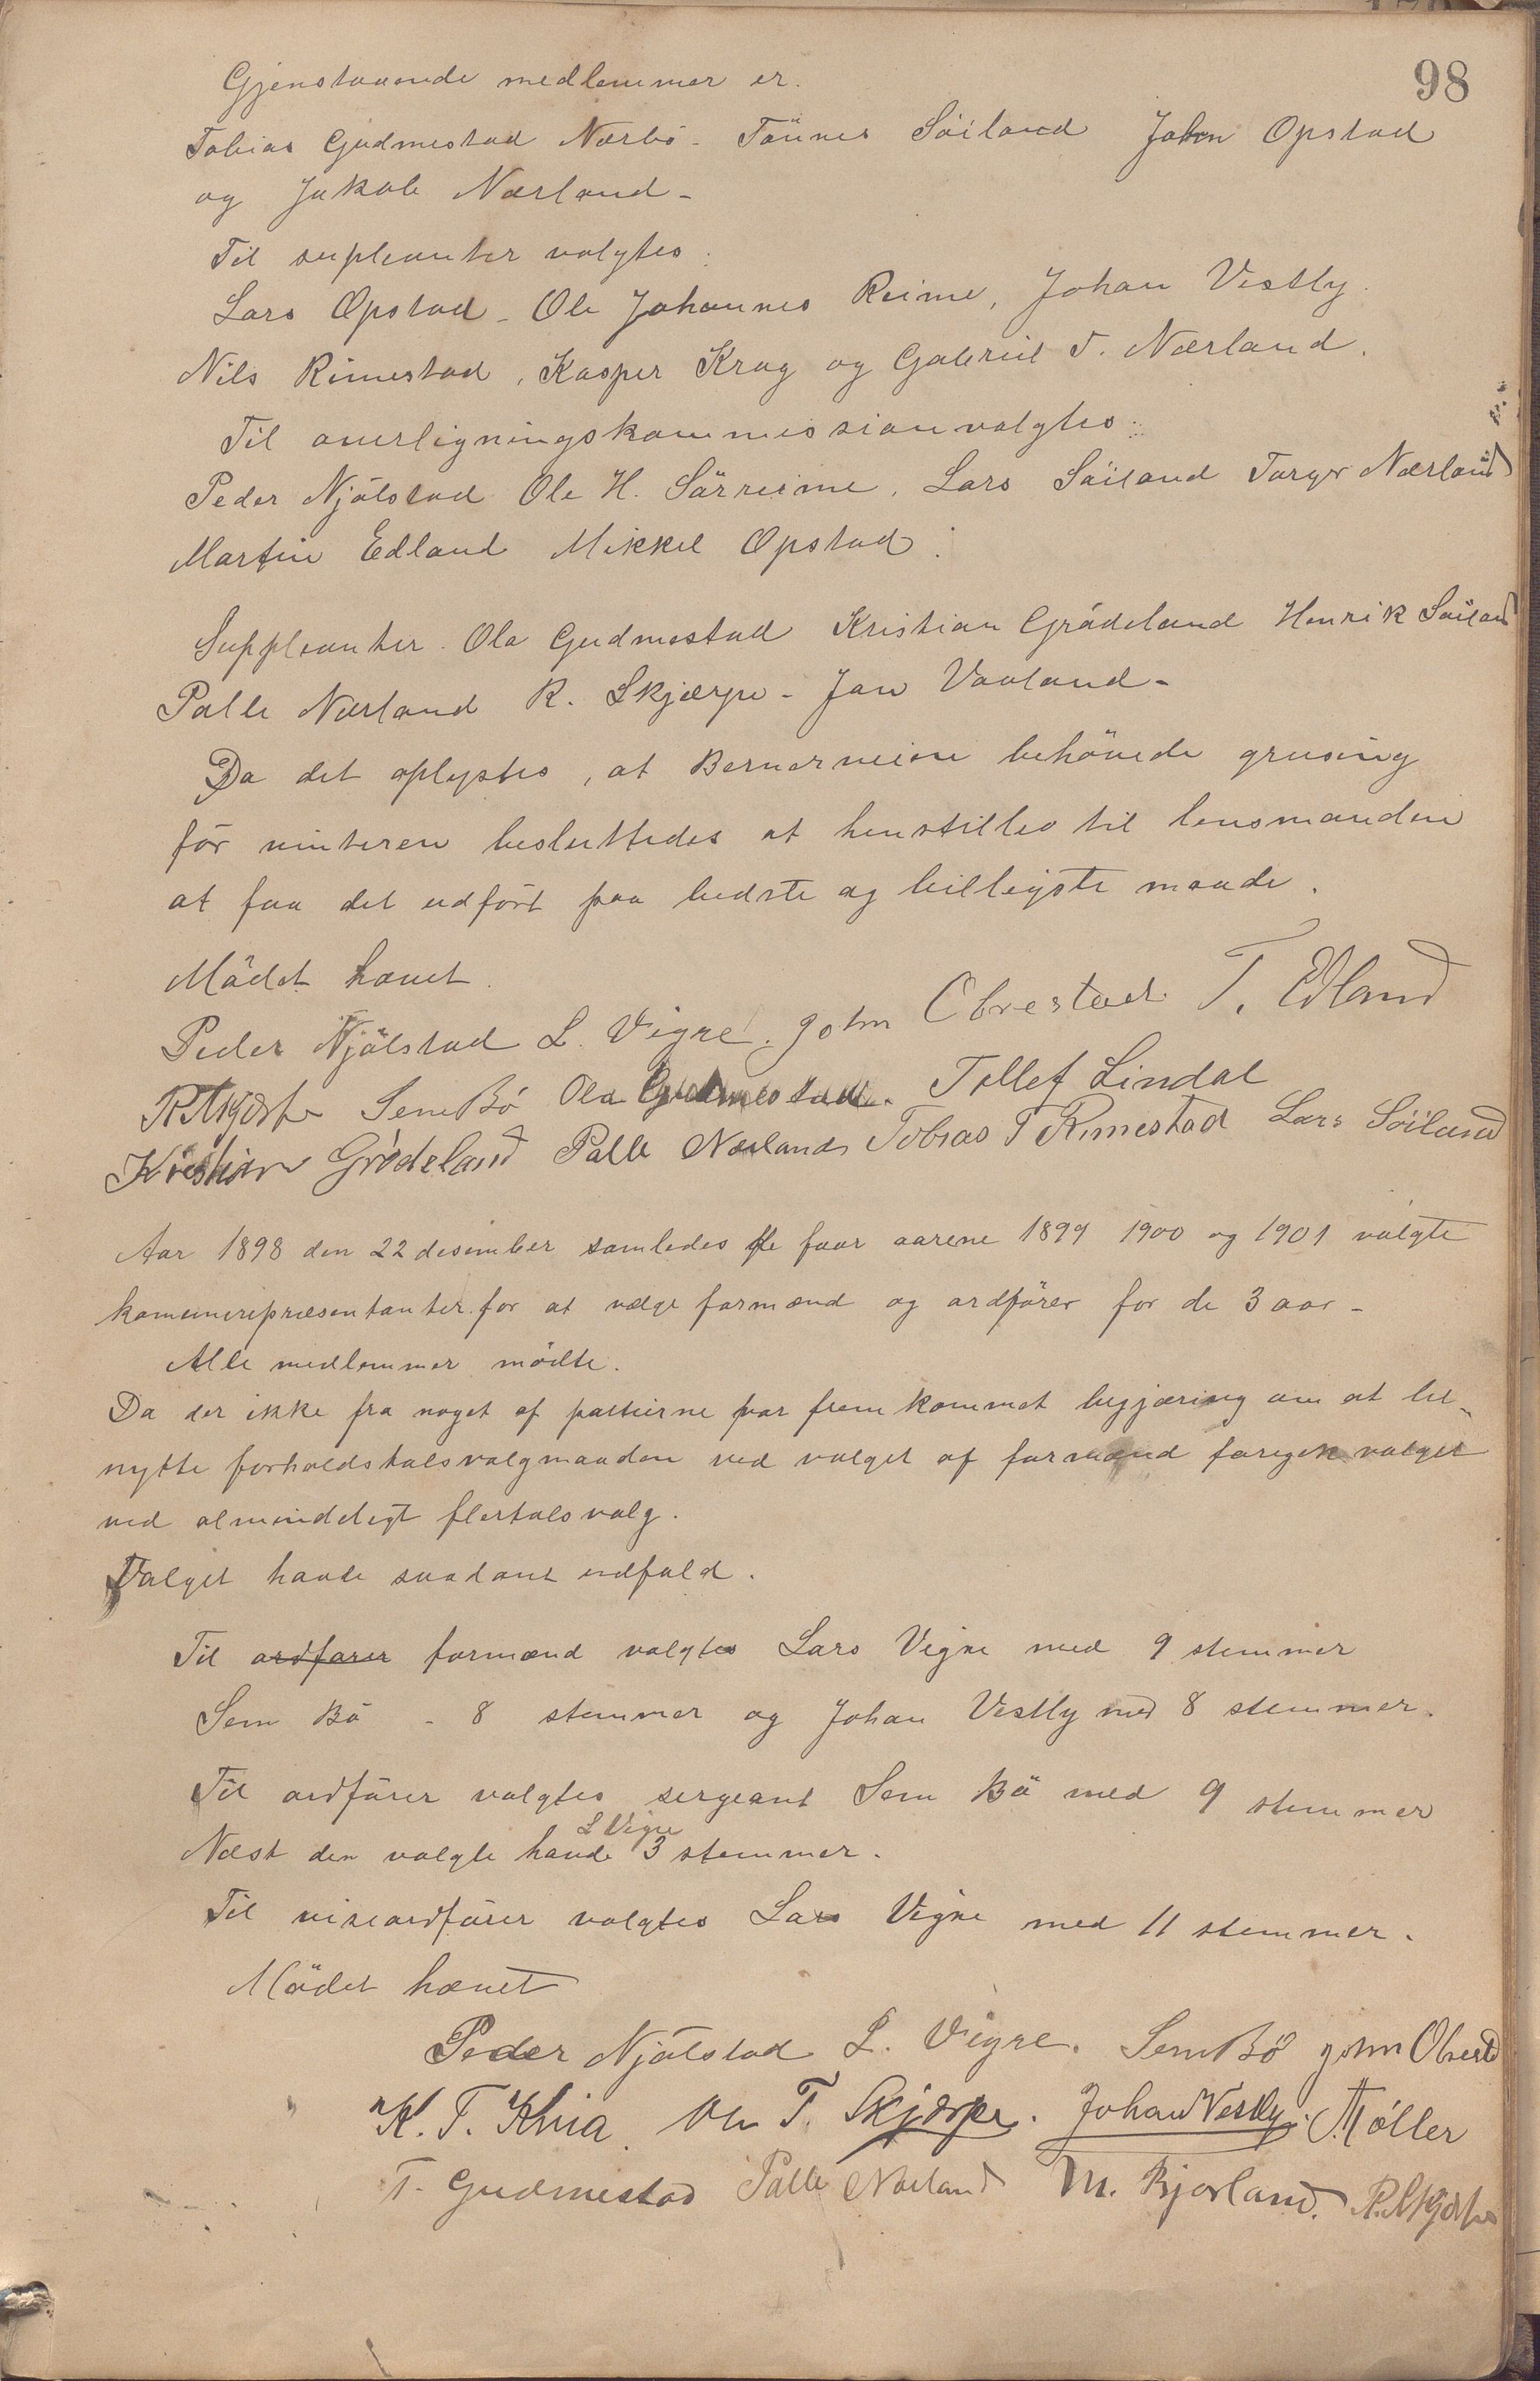 98
Gjenstaaende medlemmer er.
Tobias Gudmestad Nærbö - Tönnes Söiland John Opstad
og Jakob Nærland -
Til supleanter valgtes:
Lars Opstad - Ole Johannes Reime, Johan Vestly.
Nils Rimestad, Kasper Krag og Gabriel T. Nærland.
Til overligningskommission valgtes:
Peder Njölstad Ole H. Särreime, Lars Söiland Torger Nærland
Martin Edland Mikkel Opstad.
Suppleanter. Ola Gudmestad Kristian Grödeland Henrik Söiland
Palle Nærland R. Skjærpe - Jan Vaaland -
Da det oplystes, at Bernerveien behövede grusing
för vinteren besluttedes at henstilles til lensmanden
at faa det udfört paa bedste og billigste maade.
Mödet hævet.
Peder Njölstad L. Vigre. John Obrestad T. Edland
R. Skjærpe Sem Bö Ola Gudmestad. Tollef Lindal
Kristian Grödeland Palle Nærland Tobias T Rimestad Lars Söiland
Aar 1898 den 22 desember samledes de for aarene 1899 1900 og 1901 valgte
komunerepræsentanter for at vælge formænd og ordförer for de 3 aar -
Alle medlemmer mödte.
Da der ikke fra noget af partierne var fremkommet begjæring om at be-
nytte forholdstalsvalgmaaden ved valget af formænd foregik valget
ved almindeligt flertalsvalg.
Valget havde saadant udfald.
Til ordförer formænd valgtes Lars Vigre med 9 stemmer
Sem Bö - 8 stemmer og Johan Vestly med 8 stemmer.
Til ordförer valgtes sergeant Sem Bö med 9 stemmer
L Vigre
Næst den valgte havde 3 stemmer.
Til viseordförer valgtes Lars Vigre med 11 stemmer.
Mödet hævet
Peder Njölstad L. Vigre. Sem Bö John Obrestad
K. T. Khia. Ole T. Skjærpe. Johan Vestly. Möller
T. Gudmestad Palle Nærland M. Bjorland. R. Skjærpe